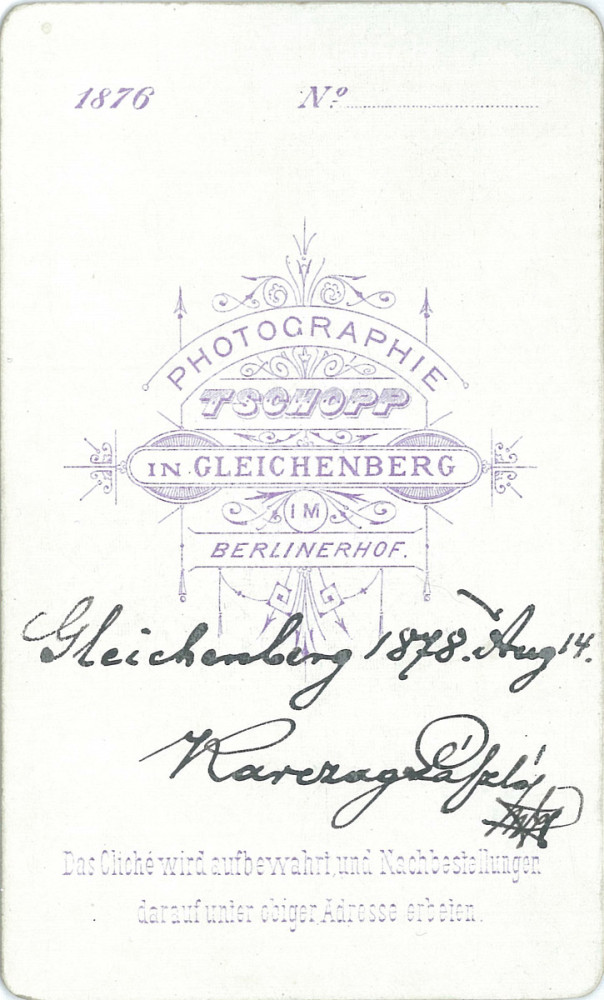 1876 Nº
PHOTOGRAPHIE
TSCHOPP
IN GLEICHENBERG
IM
BERLINERHOF.
Gleichenberg 1878. Aug 14.
Karczag
Das Cliché wird aufbewahrt, und Nachbestellungen
darauf unter obiger Adresse erbeten.